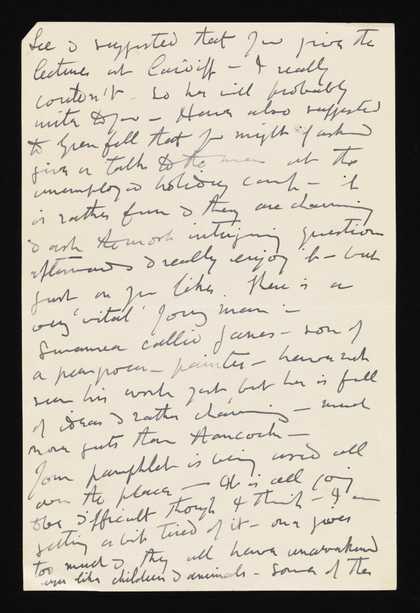 Lee & suggested that you give the
lectures at Cardiff – I really
couldn't. so he will probably
write to you – Have also suggested
to Grenfell that you might if asked
give a talk to the men at the
unemployed holiday camp – it
is rather fun & they are charming
& ask the most intriguing questions
afterwards I really enjoy it – but
just as you like. There is a
very 'vital' young man in
Swansea called Janes – son of
a – painter – have not
seen his work yet but he is full
of ideas & rather charming – much
more guts than Hancock –
Your pamphlet is being used all
over the place – It is all going
to be difficult though I think – I am
getting a bit tired of it – one gives
too much & they all have unawakened
eyes like children & animals – some of the